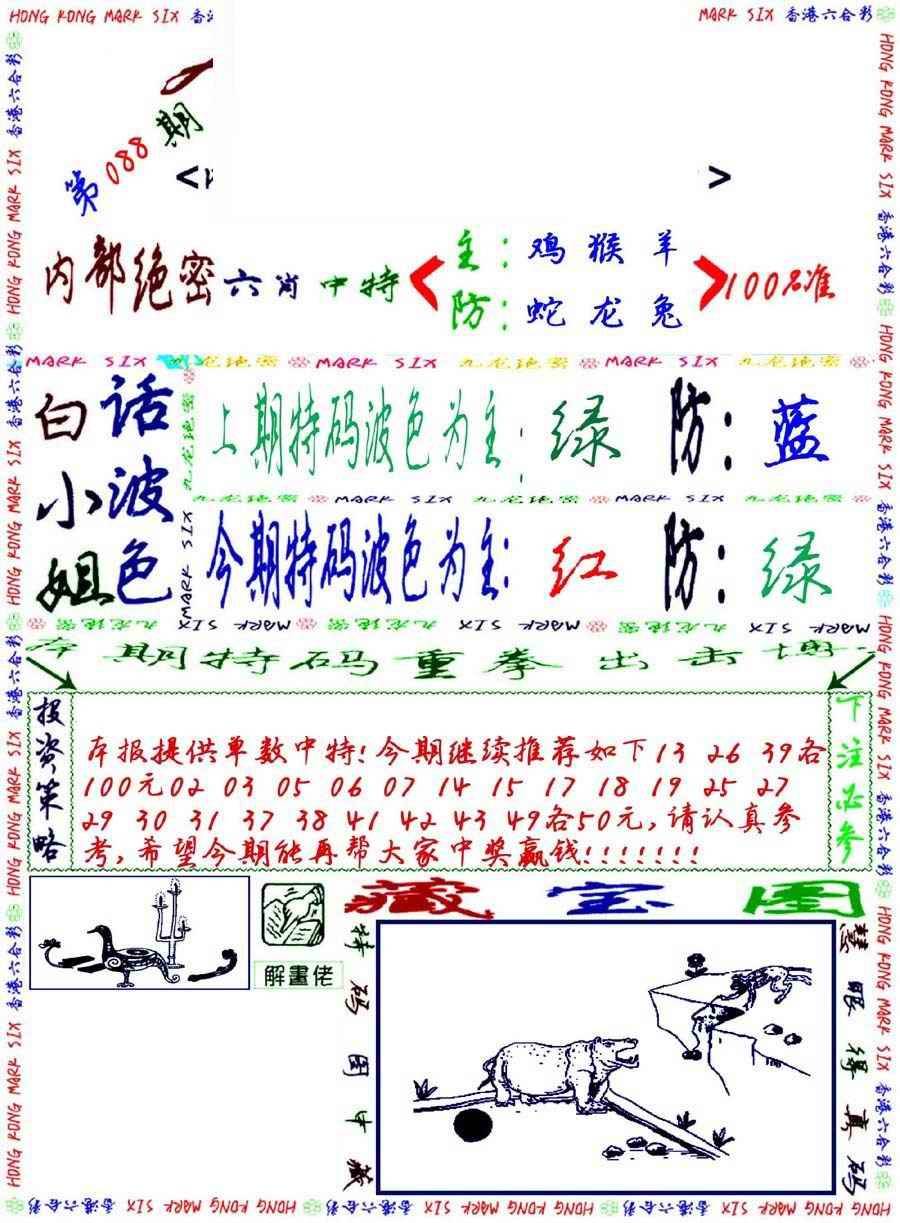 HONG KONG MARK SIX 香港
MARK SIX 香港六合彩
第088期
<
>
内部绝密六肖中特
主：鸡猴羊
防：蛇龙兔
100%准
MARK SIX 九龙绝密 MARK SIX 九龙绝密 MARK SIX 九龙绝密
白话
小波
姐色
上期特码波色为主：绿 防：蓝
九龙绝密 MARK SIX 九龙绝密 MARK SIX 九龙绝密
今期特码波色为主：红 防：绿
九龙绝密 MARK SIX 九龙绝密 MARK SIX 九龙绝密 MARK SIX
本期特码重拳出击博
投资策略
本报提供单数中特!今期继续推荐如下13 26 39各
100元02 03 05 06 07 14 15 17 18 19 25 27
29 30 31 37 38 41 42 43 49各50元,请认真参
考,希望今期能再帮大家中奖赢钱!!!!!!!
下注必参
解畫佬
藏宝图
特码图中藏
慧眼得真码
HONG KONG MARK SIX 香港六合彩